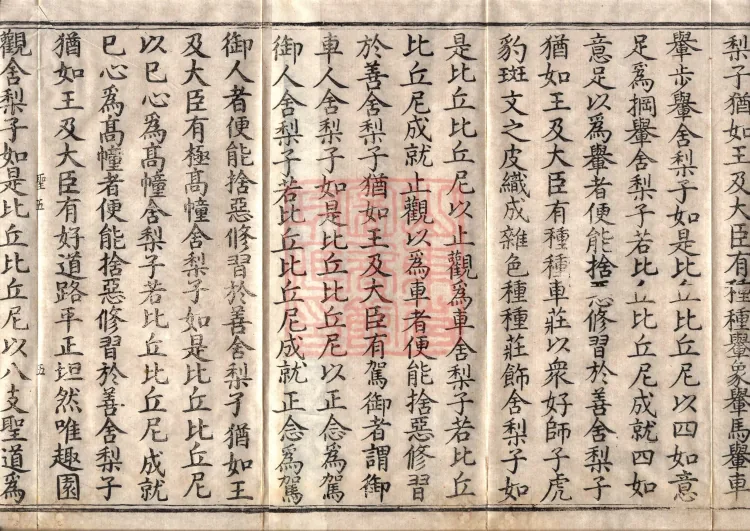 梨子猶如王及大臣有種種轝象轝馬轝車
轝步轝舍梨子如是比丘比丘尼以四如意
足爲掆轝舍梨子若比丘比丘尼成就四如
意足以爲轝者便能捨惡修習於善舍梨子
猶如王及大臣有種種車莊以衆好師子虎
豹斑文之皮織成雜色種種莊飾舍梨子如
是比丘比丘尼以止觀爲車舍梨子若比丘
比丘尼成就止觀以爲車者便能捨惡修習
於善舍梨子猶如王及大臣有駕御者謂御
車人舍梨子如是比丘比丘尼以正念爲駕
御人舍梨子若比丘比丘尼成就正念爲駕
御人者便能捨惡修習於善舍梨子猶如王
及大臣有極髙幢舍梨子如是比丘比丘尼
以已心爲髙幢舍梨子若比丘比丘尼成就
已心爲髙幢者便能捨惡修習於善舍梨子
猶如王及大臣有好道路平正坦然唯趣園
聖五
五
觀舍梨子如是比丘比丘尼以八支聖道爲